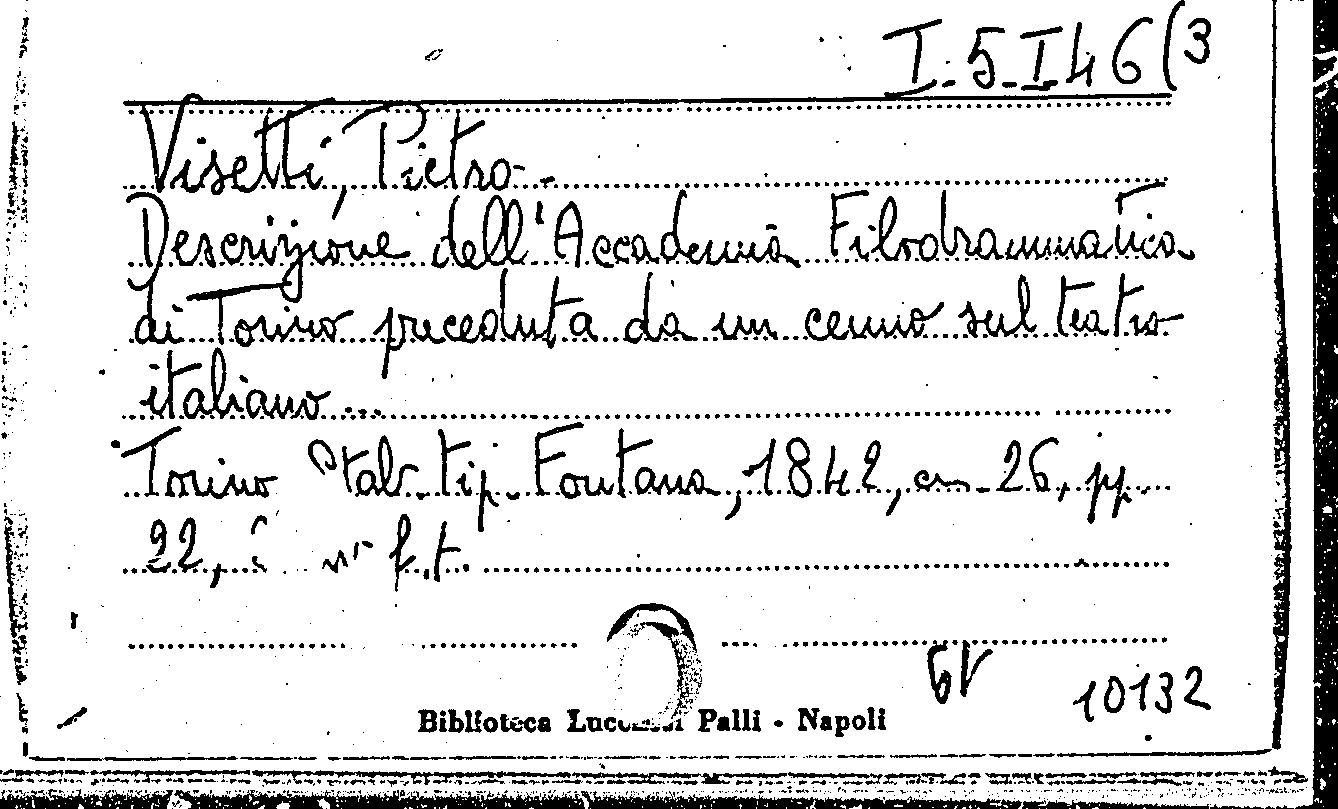 I-5-I46(3
Visetti, Pietro-.
Descrizione dell'Accademia Filodrammatica
di Torino preceduta da un cenno sul teatro
italiano ...
Torino Stab. tip. Fontana, 1842, cm. 26, pp.
22, f.t.
Biblioteca Palli - Napoli
10132